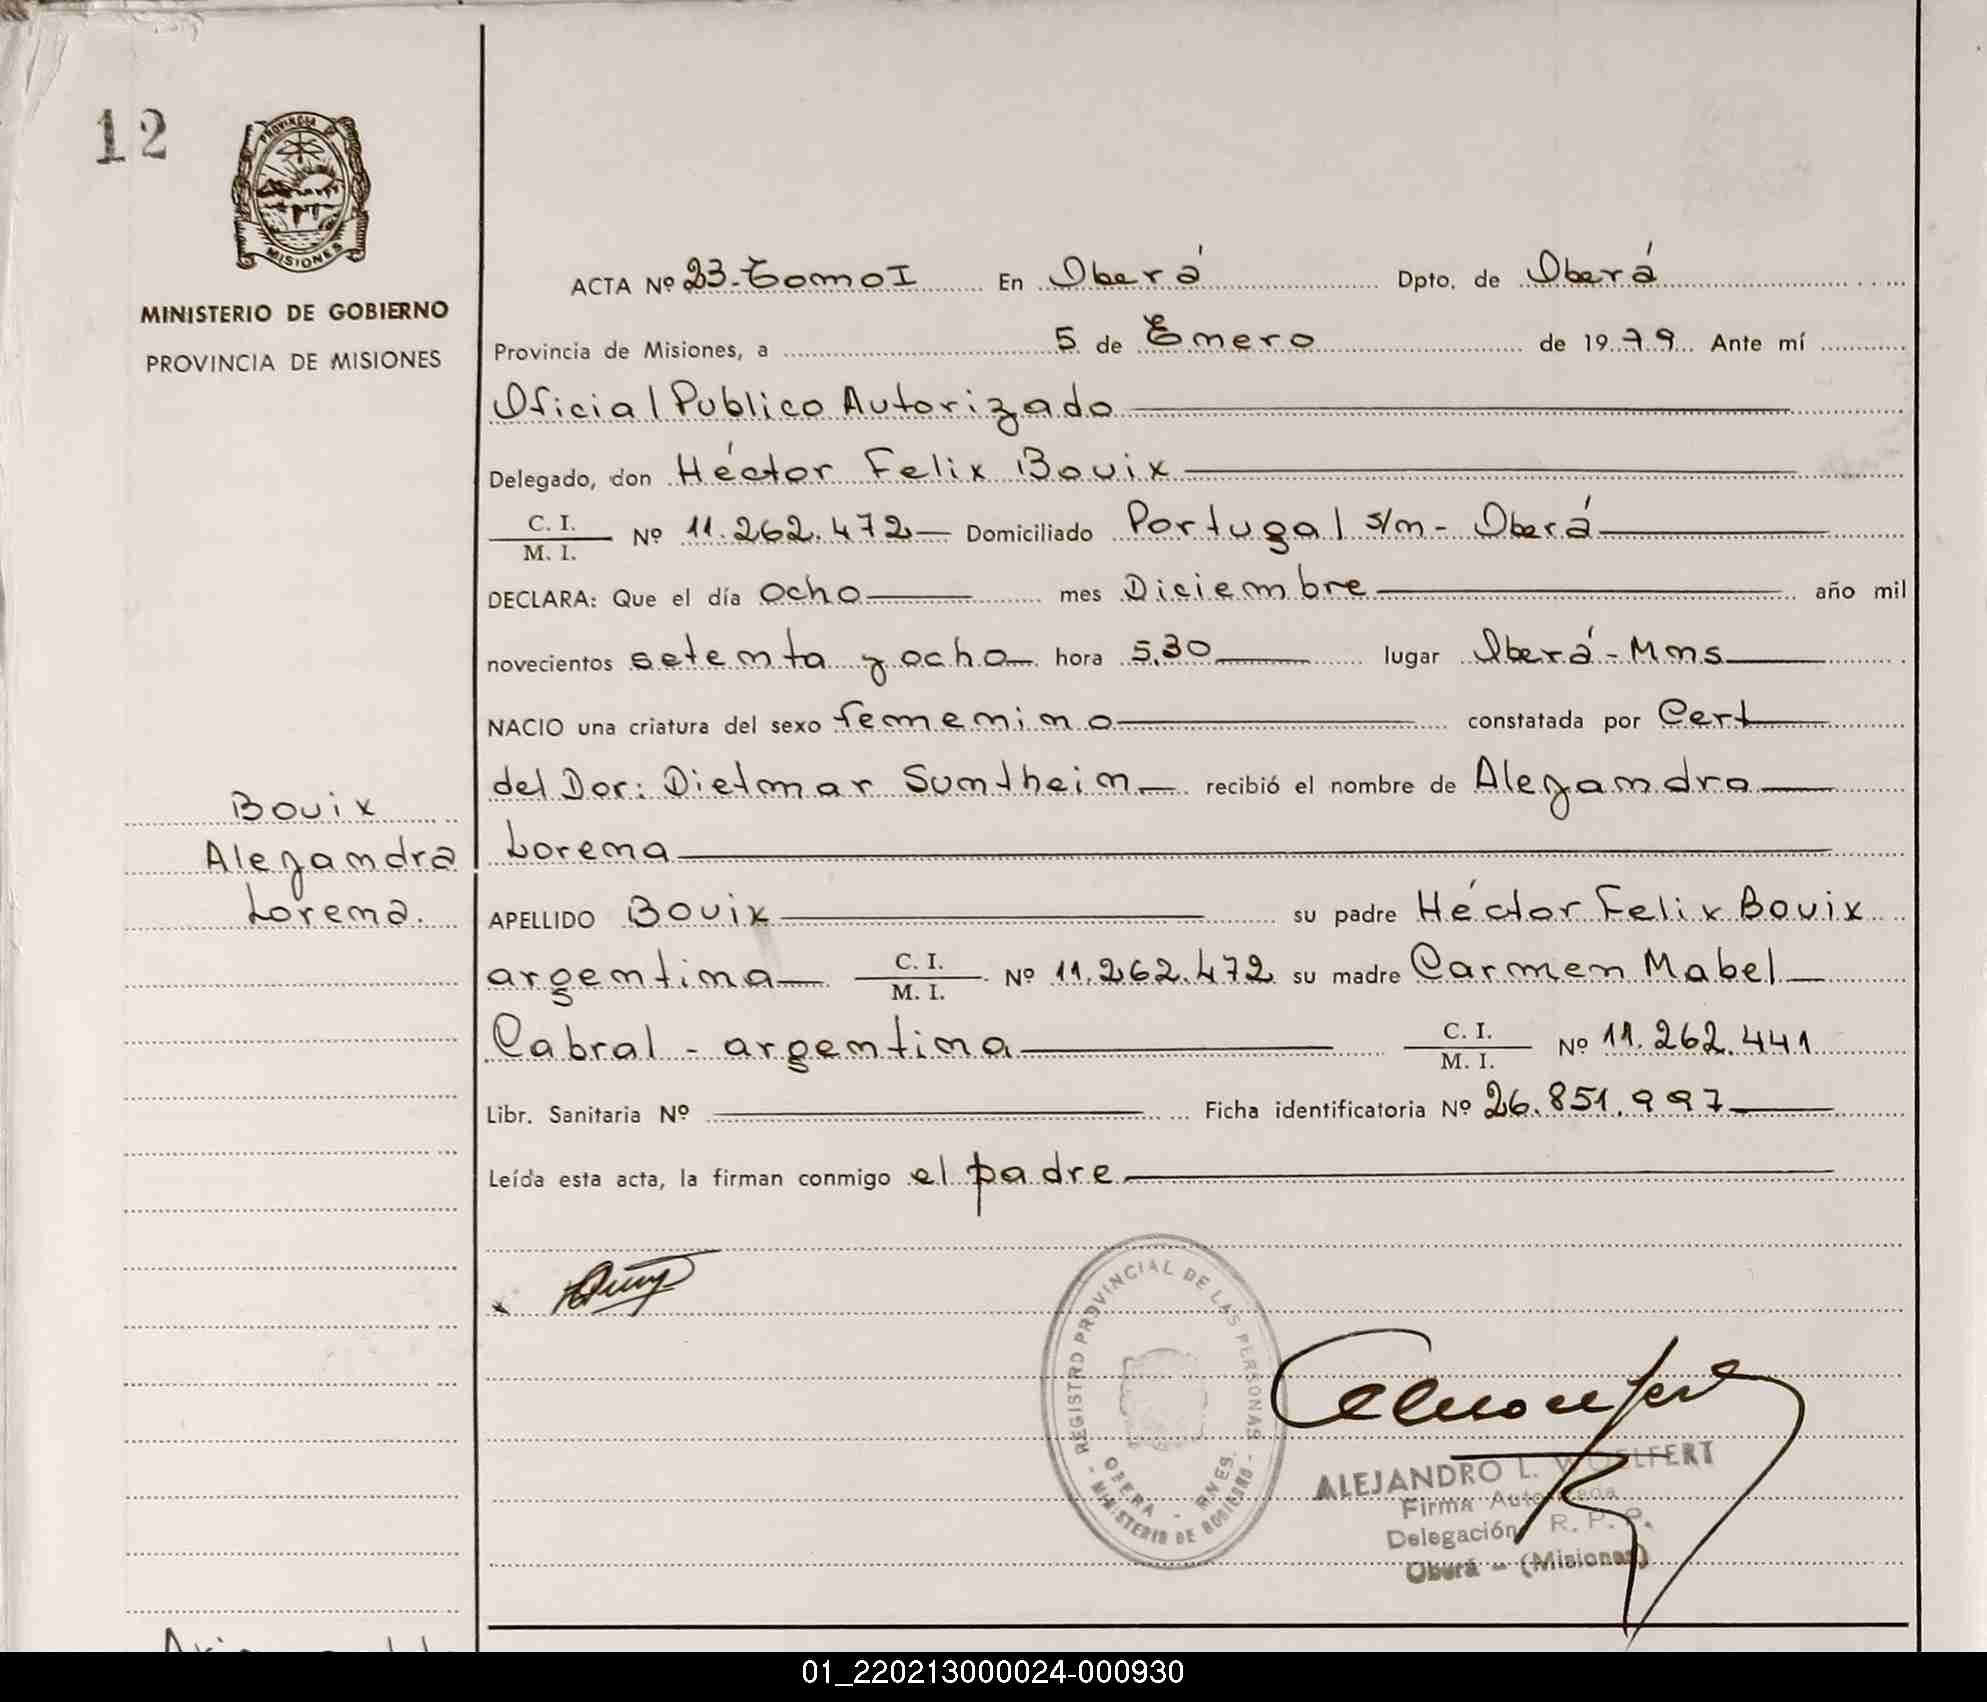 12
PROVINCIA DE
MISIONES
MINISTERIO DE GOBIERNO
PROVINCIA DE MISIONES
ACTA Nº 23-Tomo I En Oberá Dpto. de Oberá
Provincia de Misiones, a 5 de Enero de 1979 Ante mí
Oficial Publico Autorizado
Delegado, don Héctor Felix Bouix
C. I.
M. I. Nº 11.262.472 Domiciliado Portugal s/n - Oberá
DECLARA: Que el día Ocho mes Diciembre año mil
novecientos setenta y ocho hora 5,30 lugar Oberá - Mnes
NACIO una criatura del sexo femenino constatada por Cert
del Dor: Dietmar Sumthein recibió el nombre de Alejandra
Lorena
Bouix
Alejandra
Lorena.
APELLIDO Bouix su padre Héctor Felix Bouix
argentina C. I.
M. I. Nº 11.262.472 su madre Carmen Mabel
Cabral - argentina C. I.
M. I. Nº 11.262.441
Libr. Sanitaria Nº Ficha identificatoria Nº 26.851.997
Leída esta acta, la firman conmigo el padre
REGISTRO PROVINCIAL DE LAS PERSONAS
OBERA - MNES.
- MINISTERIO DE GOBIERNO -
ALEJANDRO L. WOELFERT
Firma Autorizada
Delegación R. P. P.
Oberá - (Misiones)
01_220213000024-000930